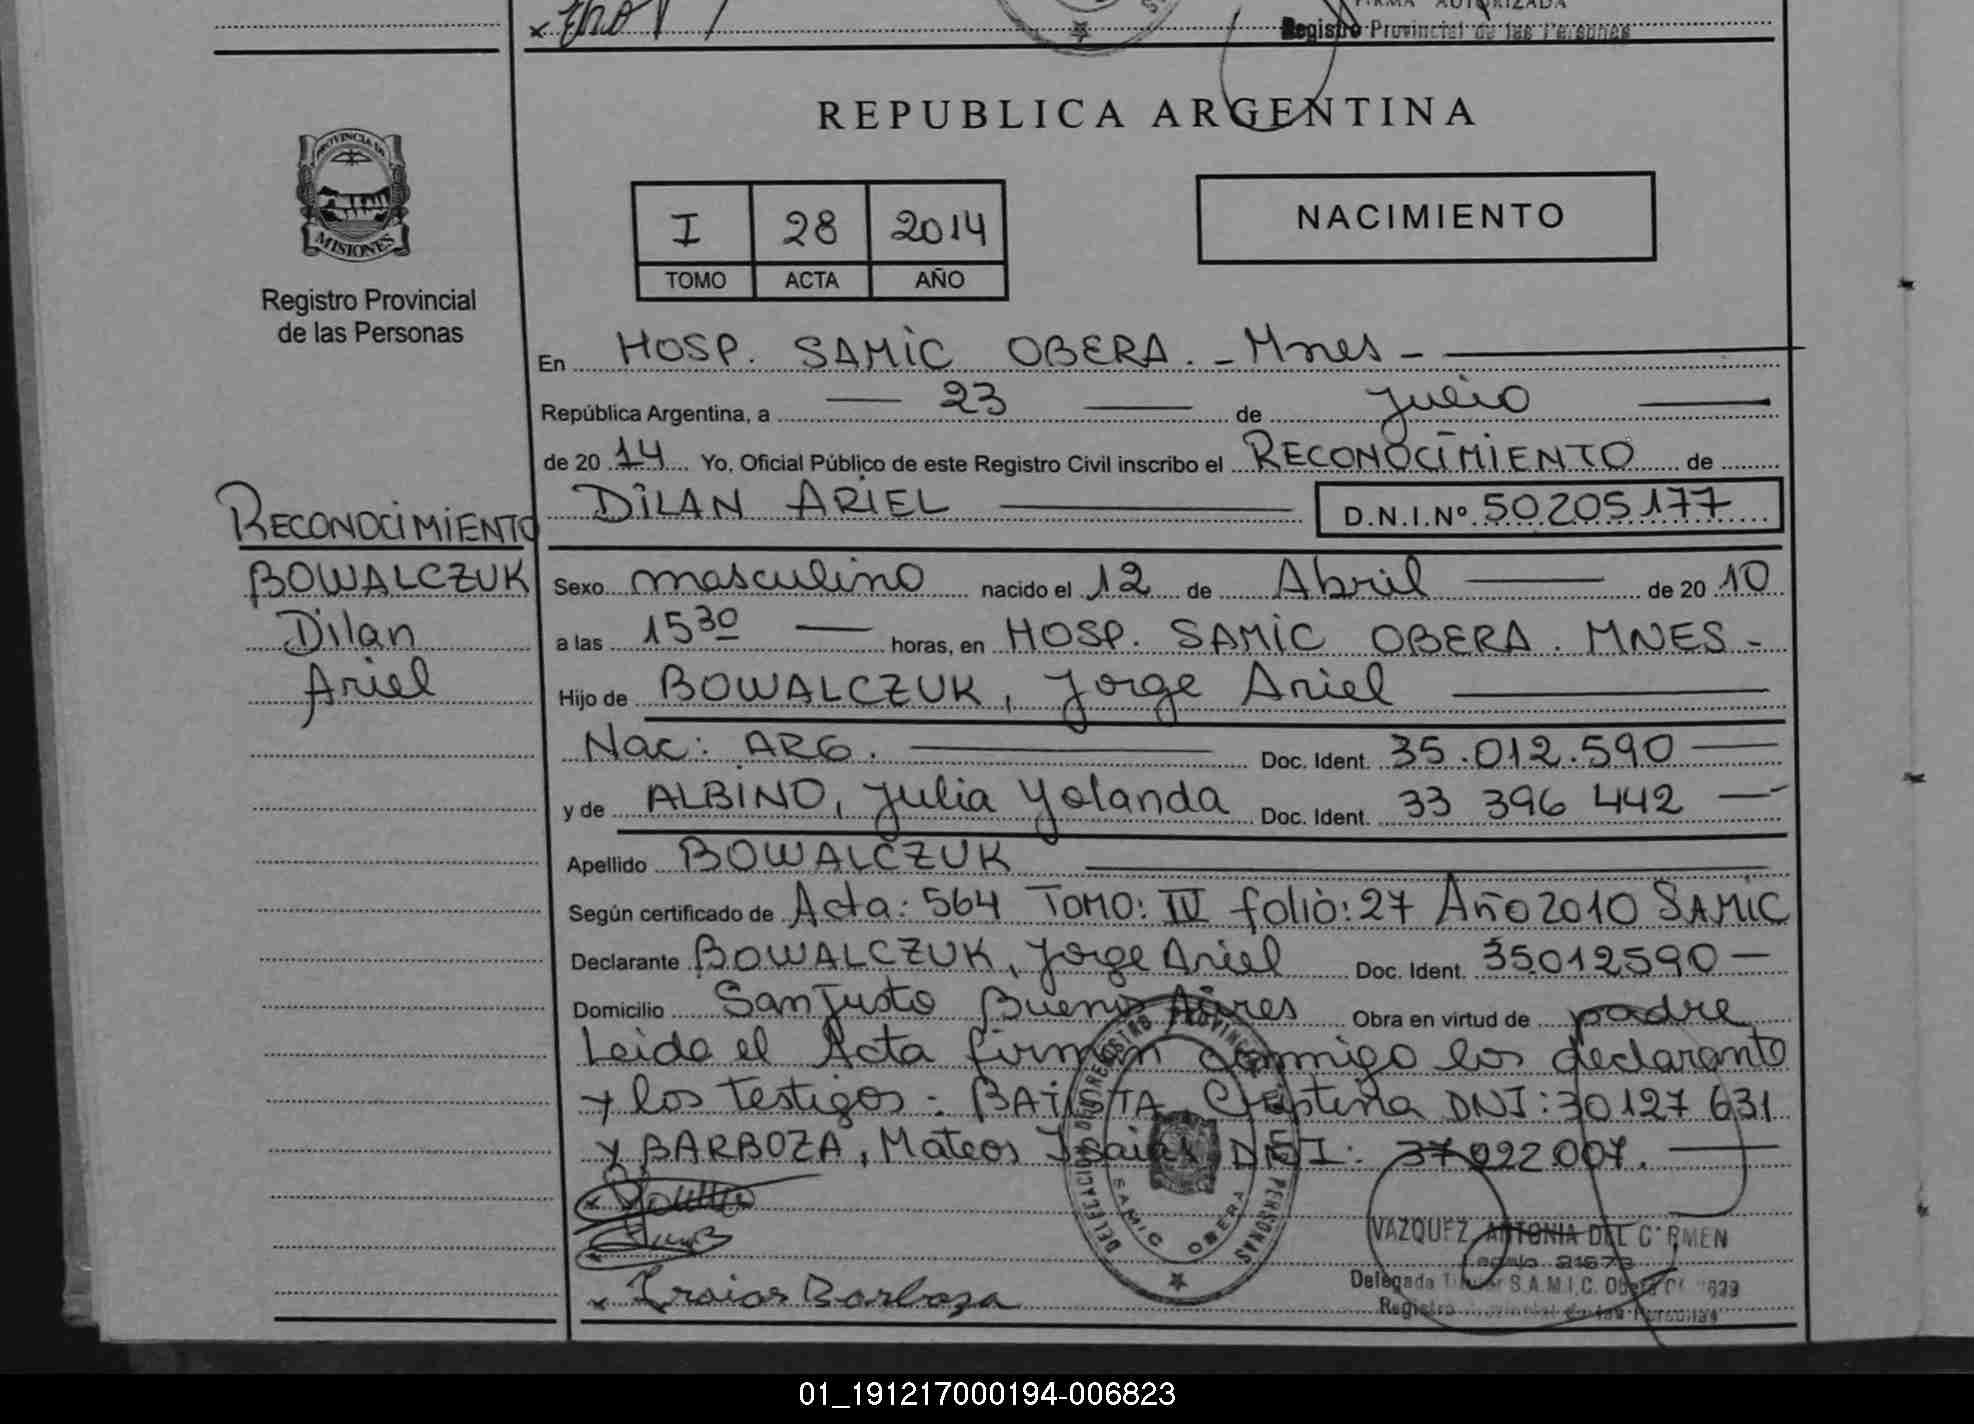 FIRMA AUTORIZADA
Registro Provincial de las Personas
REPUBLICA ARGENTINA
PROVINCIA DE
MISIONES
Registro Provincial
de las Personas
I 28 2014
TOMO ACTA AÑO
NACIMIENTO
En HOSP. SAMIC OBERA. - Mnes -
República Argentina, a — 23 — de Julio —
de 20 14 Yo, Oficial Público de este Registro Civil inscribo el RECONOCIMIENTO de
DILAN ARIEL — D.N.I.Nº 50.205.177
RECONOCIMIENTO
BOWALCZUK
Dilan
Ariel
Sexo masculino nacido el 12 de Abril — de 20 10
a las 15 30 — horas, en HOSP. SAMIC OBERA. MNES -
Hijo de BOWALCZUK, Jorge Ariel —
Nac: ARG. — Doc. Ident. 35.012.590 —
y de ALBINO, Julia Yolanda Doc. Ident. 33 396 442 —
Apellido BOWALCZUK —
Según certificado de Acta: 564 TOMO: IV folio: 27 Año 2010 SAMIC
Declarante BOWALCZUK, Jorge Ariel Doc. Ident. 35012590 —
Domicilio San Justo Buenos Aires Obra en virtud de padre
Leida el Acta firman conmigo los declarante
y los testigos: BATISTA Cristina DNI: 30127 631
y BARBOZA, Mateos Isaias DNI: 37092007. —
SAMIC OBERA
VAZQUEZ, ANTONIA DEL CARMEN
Delegada Titular S.A.M.I.C. Oberá
Registro Provincial de las Personas
x Isaias Barboza
01_191217000194-006823